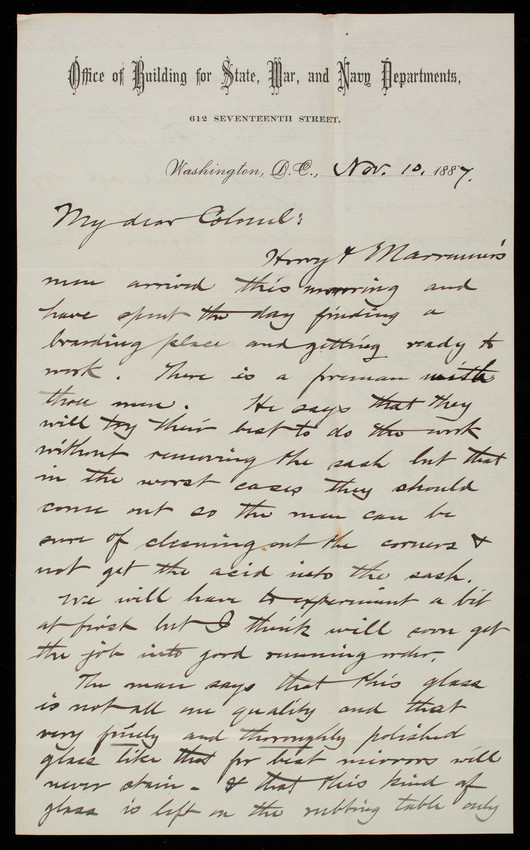 Office of Building for State, War, and Navy Departments,
612 SEVENTEENTH STREET,
Washington, D.C., Nov. 10, 1887.
My dear Colonel:
&
men arrived this morning and
have spent the day finding a
boarding place and getting ready to
work. There is a foreman with
these men. He says that they
will try their best to do the work
without removing the sash but that
in the worst cases they should
come out so the men can be
sure of cleaning out the corners &
not get the acid into the sash.
We will have to experiment a bit
at first but I think will soon get
the job into good running order.
The man says that this glass
is not all one quality and that
very finely and thoroughly polished
glass like that for best mirrors will
never stain - & that this kind of
glass is left on the rubbing table only